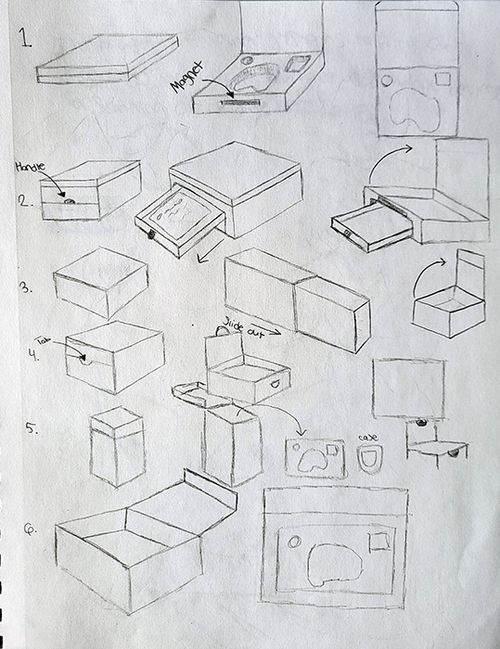 1
Magnet
Handle
2.
3.
Slide out
4.
Tab
5.
case
6.